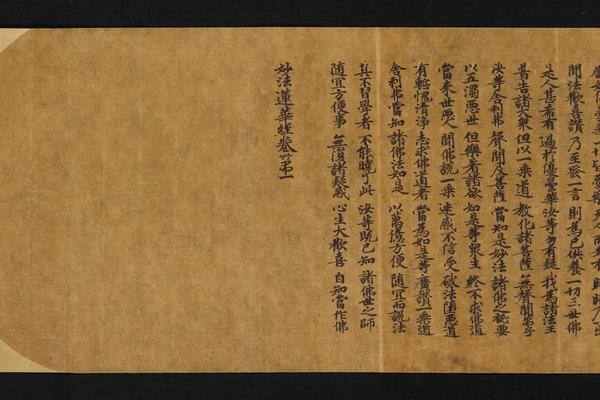 聞法歡喜讚 乃至發一言 則為已供養 一切三世佛
是人甚希有 過於優曇華 汝等勿有疑 我為諸法王
普告諸大衆 但以一乘道 教化諸菩薩 無聲聞弟子
汝等舍利弗 聲聞及菩薩 當知是妙法 諸佛之秘要
以五濁悪世 但樂著諸欲 如是等衆生 終不求佛道
當來世悪人 聞佛說一乘 迷惑不信受 破法墮悪道
有慙愧清浄 志求佛道者 當為如是等 廣讚一乘道
舎利弗當知 諸佛法如是 以萬億方便 随宜而說法
其不習學者 不能曉了此 汝等既已知 諸佛世之師
随宜方便事 無復諸疑惑 心生大歡喜 自知當作佛
妙法蓮華經卷第一